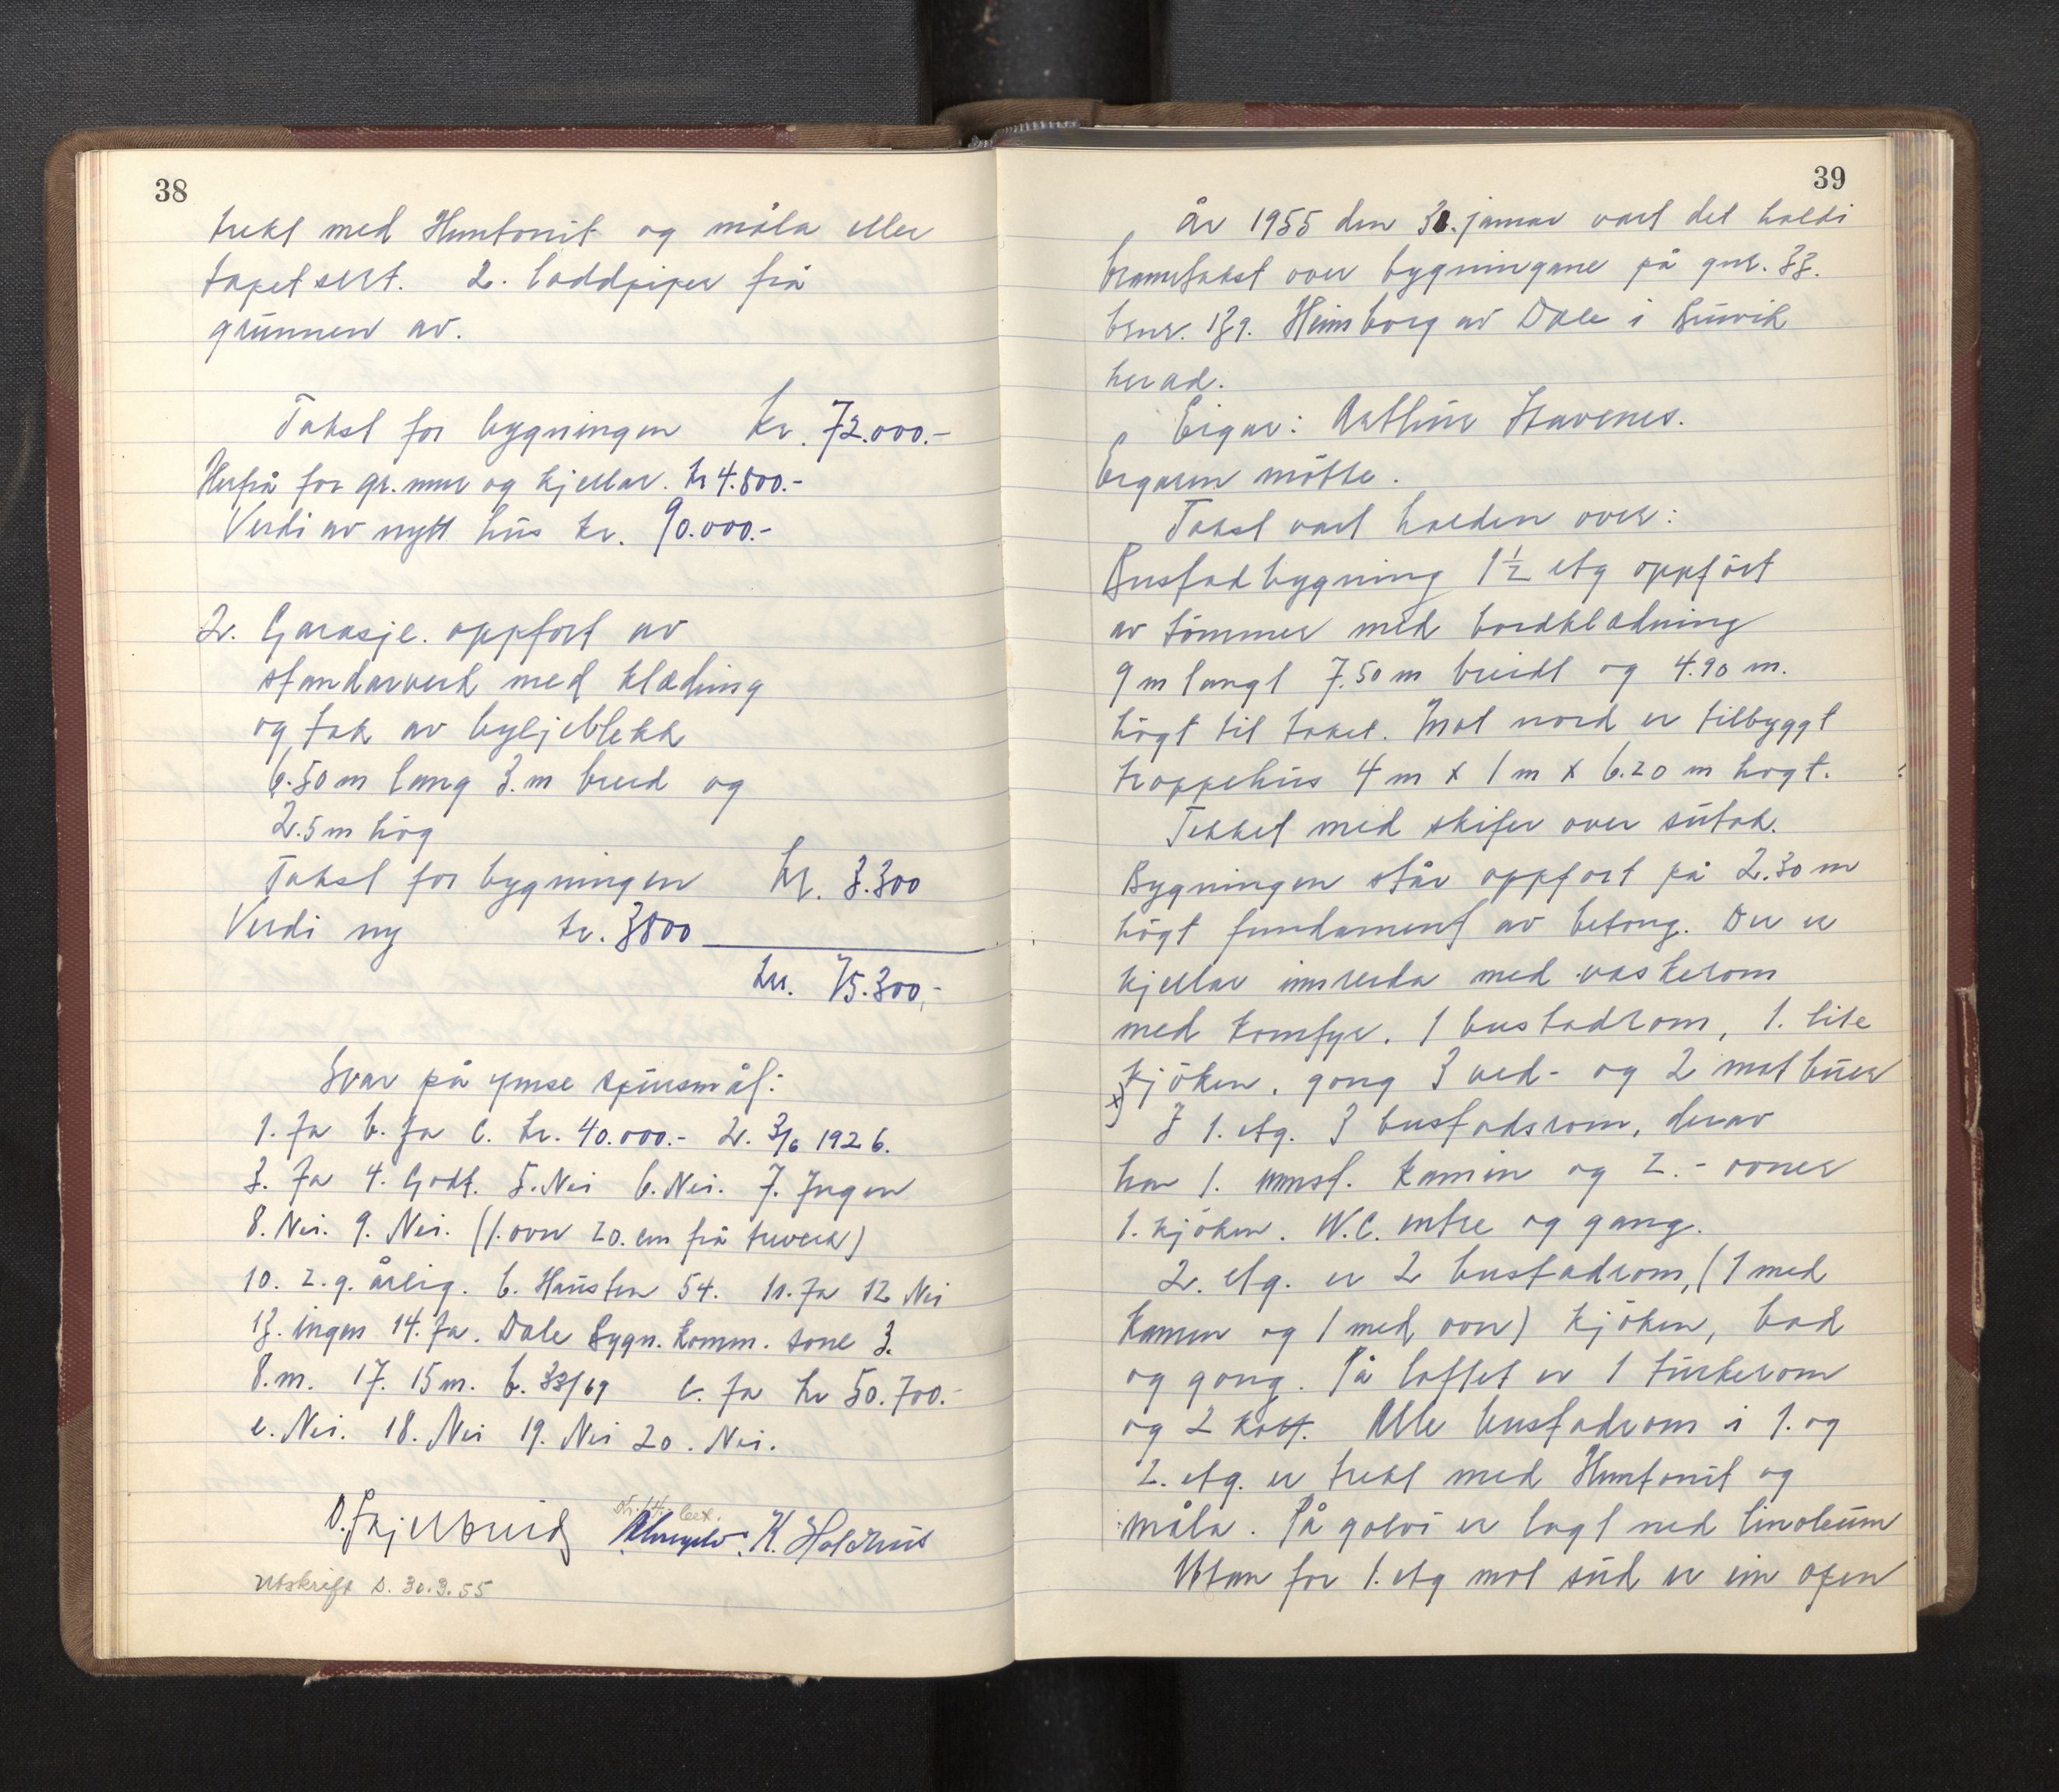 38
trekt med Huntonit og måla eller
tapetsert. 2. loddpiper frå
grunnen av.
Takst for bygningen kr. 72.000.-
Herfrå for gr.mur og kjellar. kr 4.800.-
Verdi av nytt hus kr. 90.000.-
2. Garasje. oppført av
standarverk med klædning
og tak av bylgjeblekk
6.50 m lang 3. m breid og
2.5 m høg
Takst for bygningen kr. 3.300
Verdi ny kr. 3800
kr. 75.300,-
Svar på ymse spursmål:
1. Ja b. Ja c. kr. 40.000.- 2. 3/6 1926.
3. Ja 4. Godt. 5. Nei 6. Nei. 7. Ingen
8. Nei. 9. Nei. (1. ovn 20. cm frå treverk)
10. 2. g. årlig. b. Hausten 54. 11. Ja 12 Nei
13. ingen 14. Ja. Dale bygn. komm. sone 3.
8. m. 17. 15 m. b. 33/69 c. Ja kr 50.700.-
e. Nei. 18. Nei 19. Nei 20. Nei.
K. Holdhus
Utskrift s. 30.3.55
39
År 1955 den 31. januar vart det haldi
branntakst over bygningane på gnr. 33.
brnr. 139. Heimborg av Dale i Bruvik
herad.
Eigar: Arthur Stavenes.
Eigaren møtte.
Takst vart halden over:
Bustadbygning 1½ etg oppført
av tømmer med bordklædning
9 m langt 7.50 m breidt og 4.90 m.
høgt til taket. Mot nord er tilbyggt
trappehus 4 m x 1 m x 6.20 m høgt.
Tekket med skifer over sutak.
Bygningen står oppført på 2.30 m
høgt fundament av betong. Der er
kjellar innreida med vaskerom
med komfyr. 1 bustadrom, 1. lite
kjøken. gong 3 ved- og 2 matbuer
x) I 1. etg. 3 bustadsrom, derav
har 1. kamin og 2.- ovner
1. kjøken. W.C. entre og gang.
2. etg. er 2 bustadrom, (1 med
kamin og 1 med ovn) kjøken, bad
og gong. På loftet er 1 turkerom
og 2 kott. Alle bustadrom i 1. og
2. etg. er trekt med Huntonit og
måla. På golvi er lagt ned linoleum
Utan for 1. etg mot sud er ein open